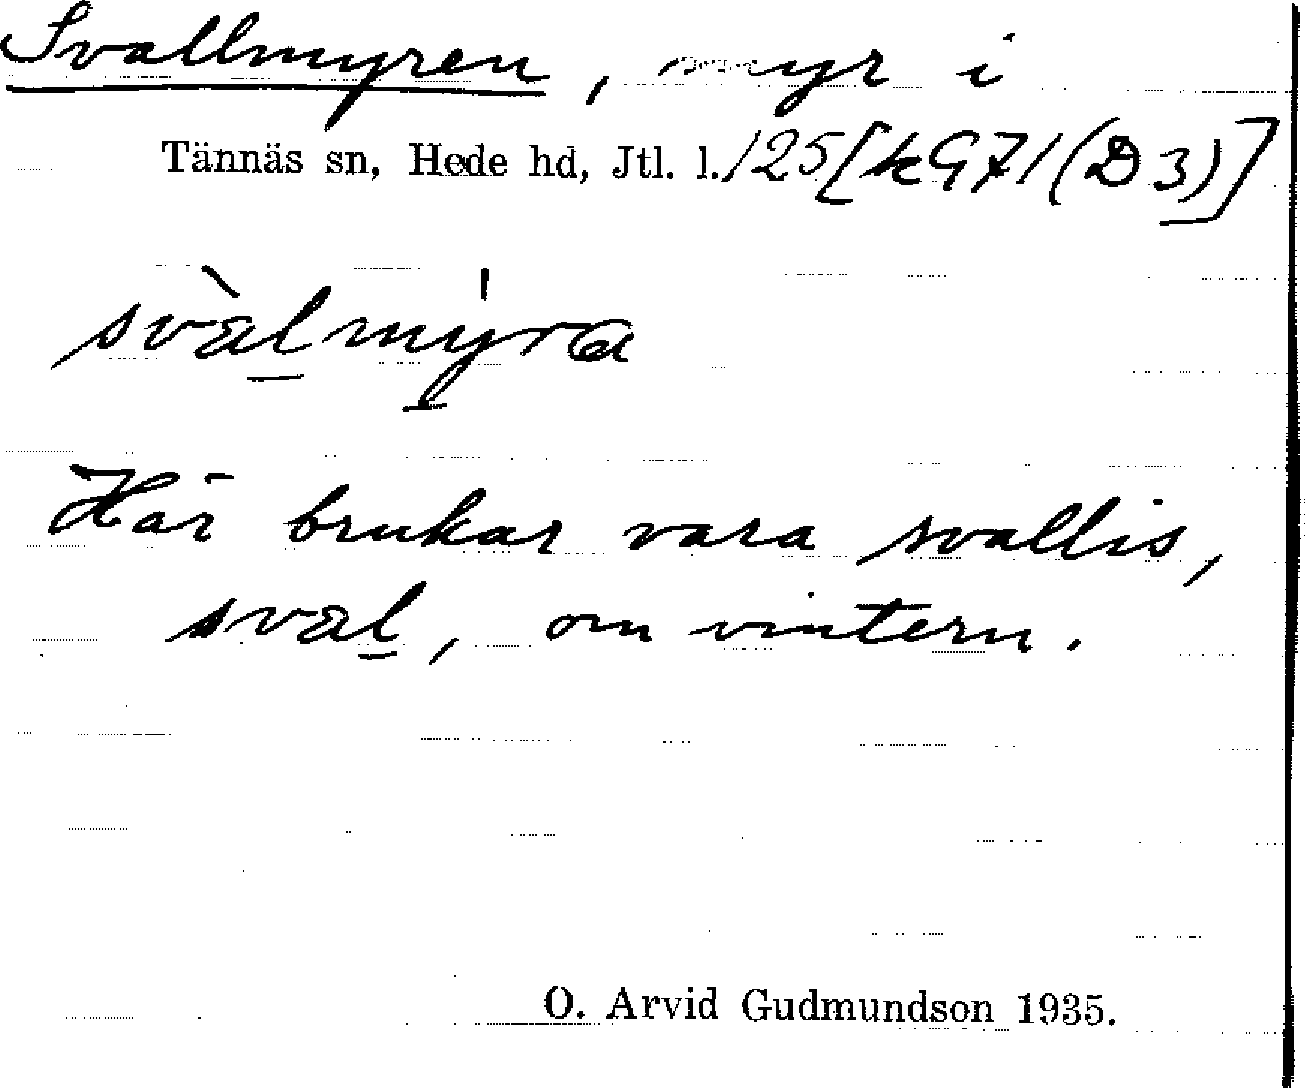 Svallmyren, myr i
Tännäs sn, Hede hd, Jtl. l. 125 [k 971 (D 3)]
svàl̲mýra
Här brukar vara svallis,
sval̲, om vintern.
O. Arvid Gudmundson 1935.